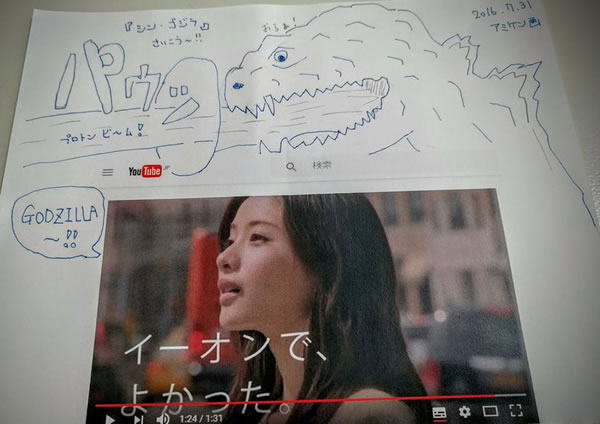 『シン・ゴジラ』
さいこう〜!!
おらぁ!
2016.11.31
アミケン画
パウッ
プロトンビ〜ム!
YouTube JP
検索
GODZILLA
〜!!
イーオンで、
よかった。
1:24 / 1:31